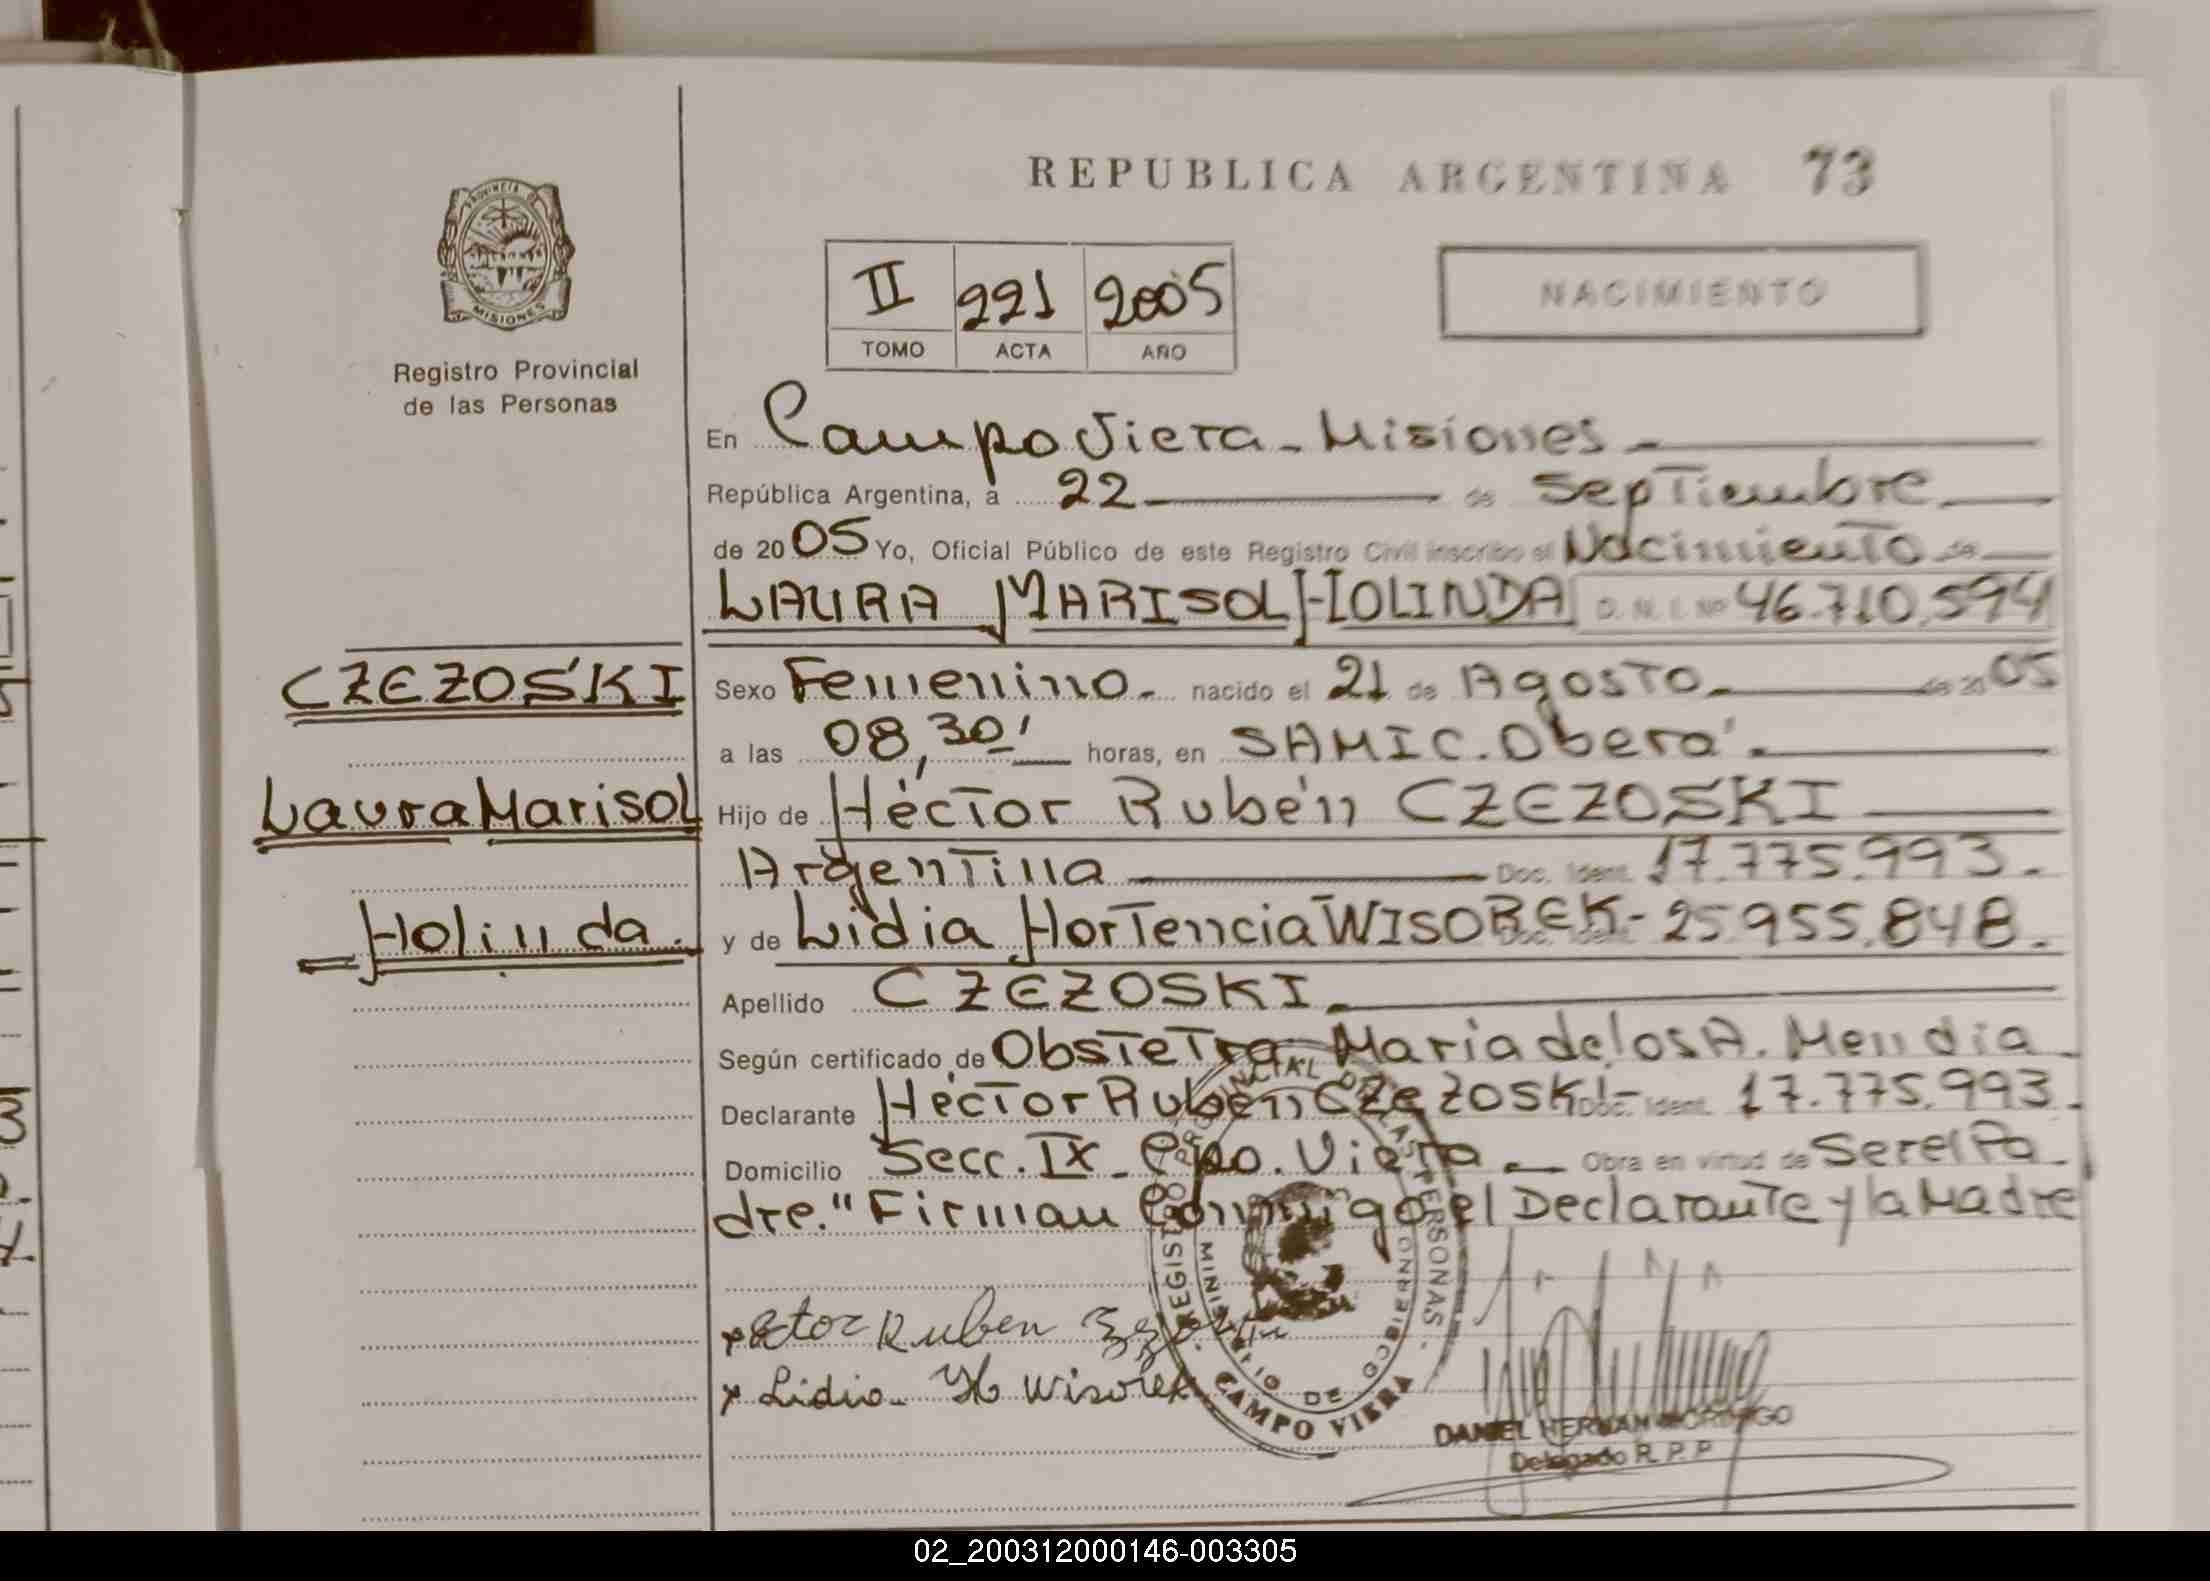 REPUBLICA ARGENTINA 73
PROVINCIA DE
MISIONES
Registro Provincial
de las Personas
II 221 2005
TOMO ACTA AÑO
NACIMIENTO
En Campo Viera - Misiones
República Argentina, a 22 de Septiembre
de 2005 Yo, Oficial Público de este Registro Civil inscribo el Nacimiento de
LAURA MARISOL HOLINDA D. N. I. Nº 46.710.594
CZEZOSKI
Sexo Femenino nacido el 21 de Agosto de 2005
a las 08,30' horas, en SAMIC. Oberá.
Laura Marisol
Hijo de Héctor Rubén CZEZOSKI
Argentina Doc. Ident. 17.775.993.
Holinda.
y de Lidia Hortencia WISOREK - Doc. Ident. 25955.848.
Apellido CZEZOSKI.
Según certificado de Obstetra Maria de los A. Mendia
Declarante Héctor Rubén CZEZOSKI - Doc. Ident. 17.775.993.
Domicilio Secc. IX - Cpo. Viera. Obra en virtud de Ser el Pa
dre." Firman Conmigo el Declarante y la Madre
REGISTRO PROVINCIAL DE LAS PERSONAS
MINISTERIO DE GOBIERNO
CAMPO VIERA
x Ector Ruben
x Lidia H Wisorek
DANIEL HERNAN MORINIGO
Delegado R. P. P
02_200312000146-003305